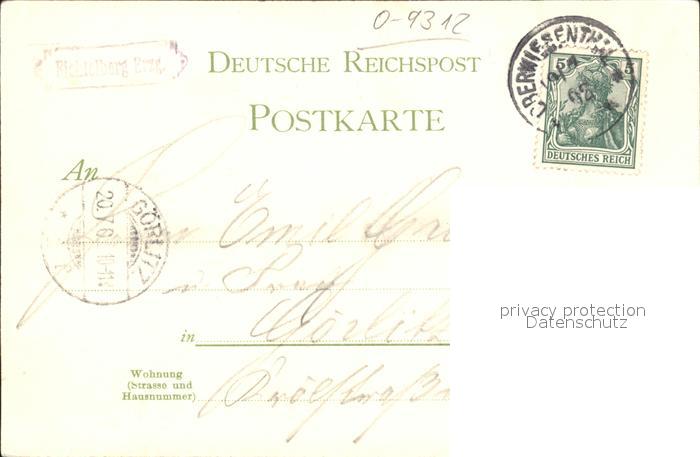 0-9312
Fichtelberg Erzg.
DEUTSCHE REICHSPOST
POSTKARTE
OBERWIESENTHAL
02
5 5
DEUTSCHES REICH
An
GÖRLITZ
20 7 0
10-11
Emil
u
in Görlitz
Wohnung
(Strasse und
Hausnummer)
privacy protection
Datenschutz